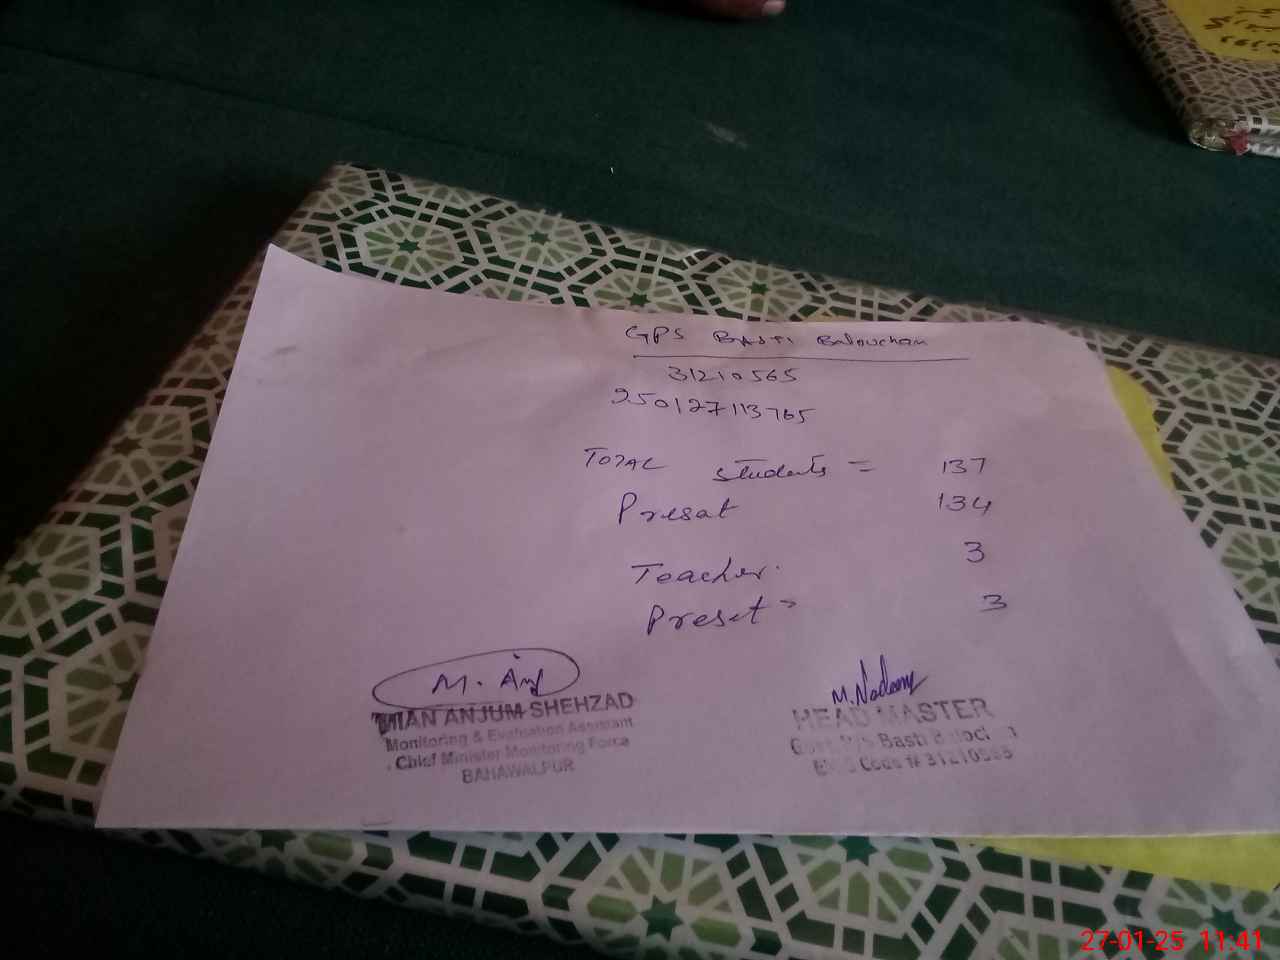 GPS Basti Balouchan
31210565
250127113765
Total students = 137
Presat 134
Teacher. 3
Preset = 3
M. Anj
MIAN ANJUM SHEHZAD
Monitoring & Evaluation Assistant
Chief Minister Monitoring Force
BAHAWALPUR
M. Nadeem
HEAD MASTER
Govt. P/S Basti
Code # 31210565
27-01-25 11:41